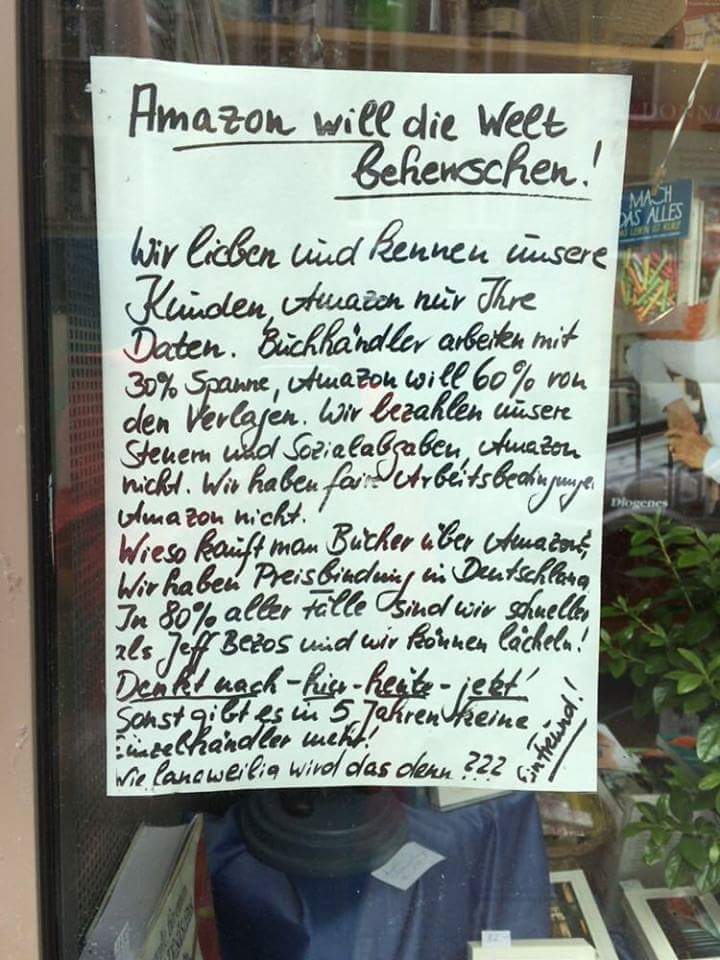 Amazon will die Welt
beherrschen!
Wir lieben und kennen unsere
Kunden, Amazon nur Ihre
Daten. Buchhändler arbeiten mit
30% Spanne, Amazon will 60% von
den Verlagen. Wir bezahlen unsere
Steuern und Sozialabgaben, Amazon
nicht. Wir haben faire Arbeitsbedingungen
Amazon nicht.
Wieso kauft man Bücher über Amazon?
Wir haben Preisbindung in Deutschland
In 80% aller Fälle sind wir schneller
als Jeff Bezos und wir können lächeln!
Denkt nach - hier - heute - jetzt!
Sonst gibt es in 5 Jahren keine
Einzelhändler mehr!
Wie langweilig wird das denn ???
Ein Freund!
MACH
DAS ALLES
Diogenes